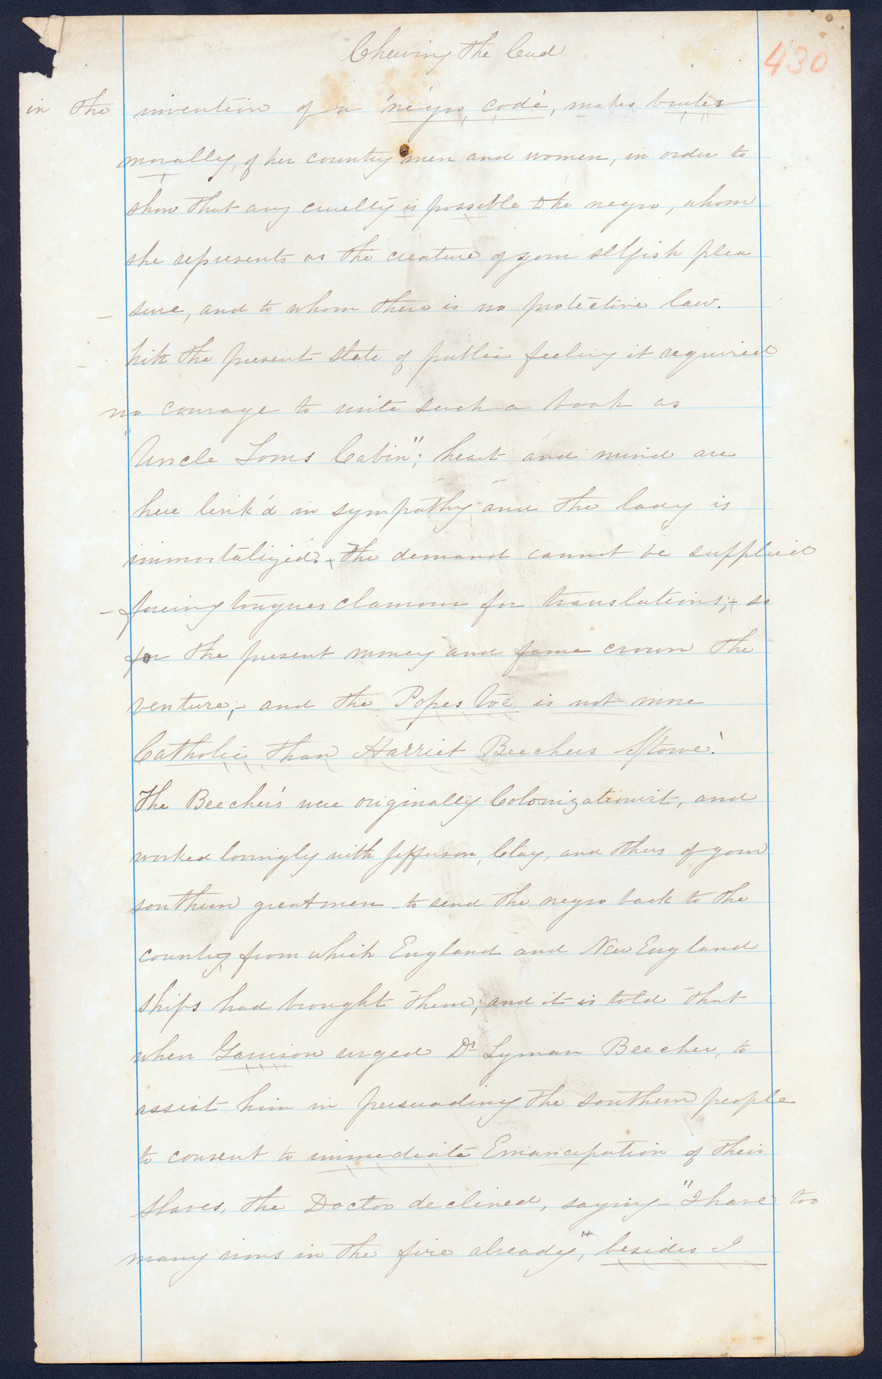 Chewing the Cud
430
in the invention of a 'negro code', makes brutes
morally, of her country men and women, in order to
show that any cruelty is possible to the negro, whom
she represents as the creature of your selfish plea
- sure, and to whom there is no protective law.
With the present state of public feeling it required
no courage to write such a book as
"Uncle Toms Cabin"; heart and mind are
here link'd in sympathy and the lady is
immortalized. - The demand cannot be supplied
- foreing tongues clamour for translations; - so
for the present money and fame crown the
venture, - and the Popes is not more
Catholic than Harriet Beechers Stowe!
The Beecher's were originally Colonizationist, and
worked lovingly with Jefferson, Clay, and others of your
southern great men - to send the negro back to the
country from which England and New England
ships had brought them; and it is told that
when Garrison urged Dr Lyman Beecher, to
assist him in persuading the southern people
to consent to immediate Emancipation of their
slaves, the Doctor declined, saying - "I have too
many irons in the fire already", besides I